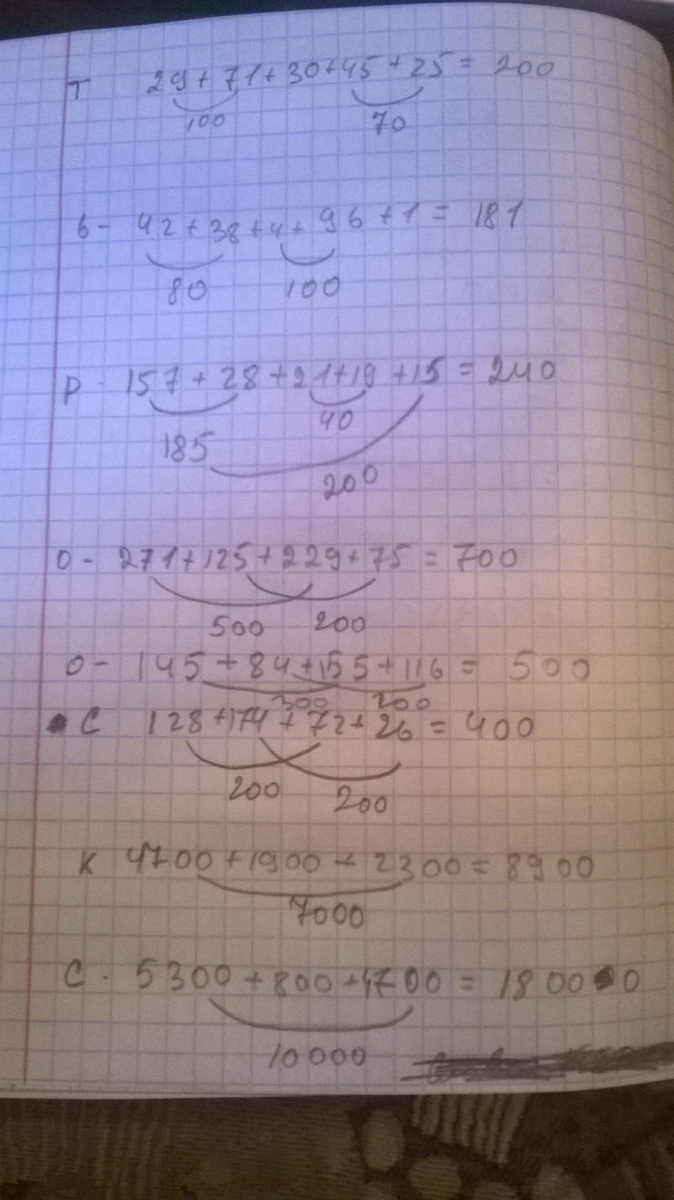 т 29+71+30+45+25=200
100 70
ь- 42+38+4+96+1=181
80 100
р. 157+28+21+19+15=240
40
185
200
о- 271+125+229+75=700
500 200
о- 145+84+155+116=500
300 200
с 128+174+72+26=400
200 200
к 4700+1900+2300=8900
7000
с. 5300+800+4700=18000
10000